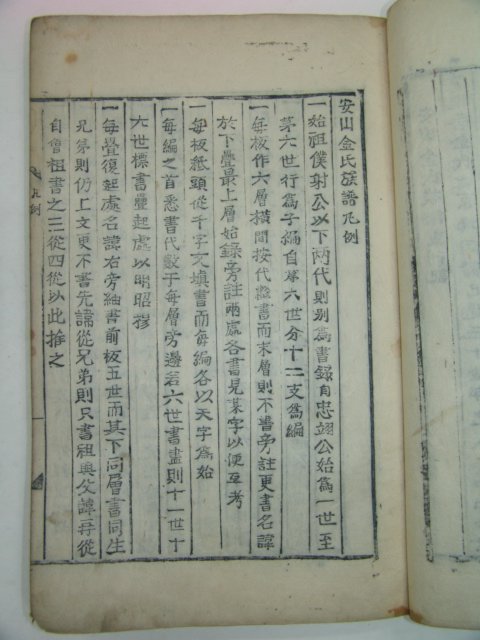 安山金氏族譜凡例
一始祖僕射公以下兩代則别爲書錄自忠翊公始爲一世至
第六世行爲子編自第六世分十二支爲編
一每板作六層橫間按代繼書而末層則不書旁註更書名諱
於下疊最上層始錄旁註兩處各書見某字以便互考
一每板紙頭從千字文塡書而每編各以天字爲始
一每編之首悉書代數于每層旁邊若六世書盡則十一世十
六世標書疊起處以明昭穆
一每疊復起處名諱右旁細書前板五世而其下同層書同生
兄弟則仿上文更不書先諱從兄弟則只書祖與父諱再從
自曾祖書之三從四從以此推之
凡例